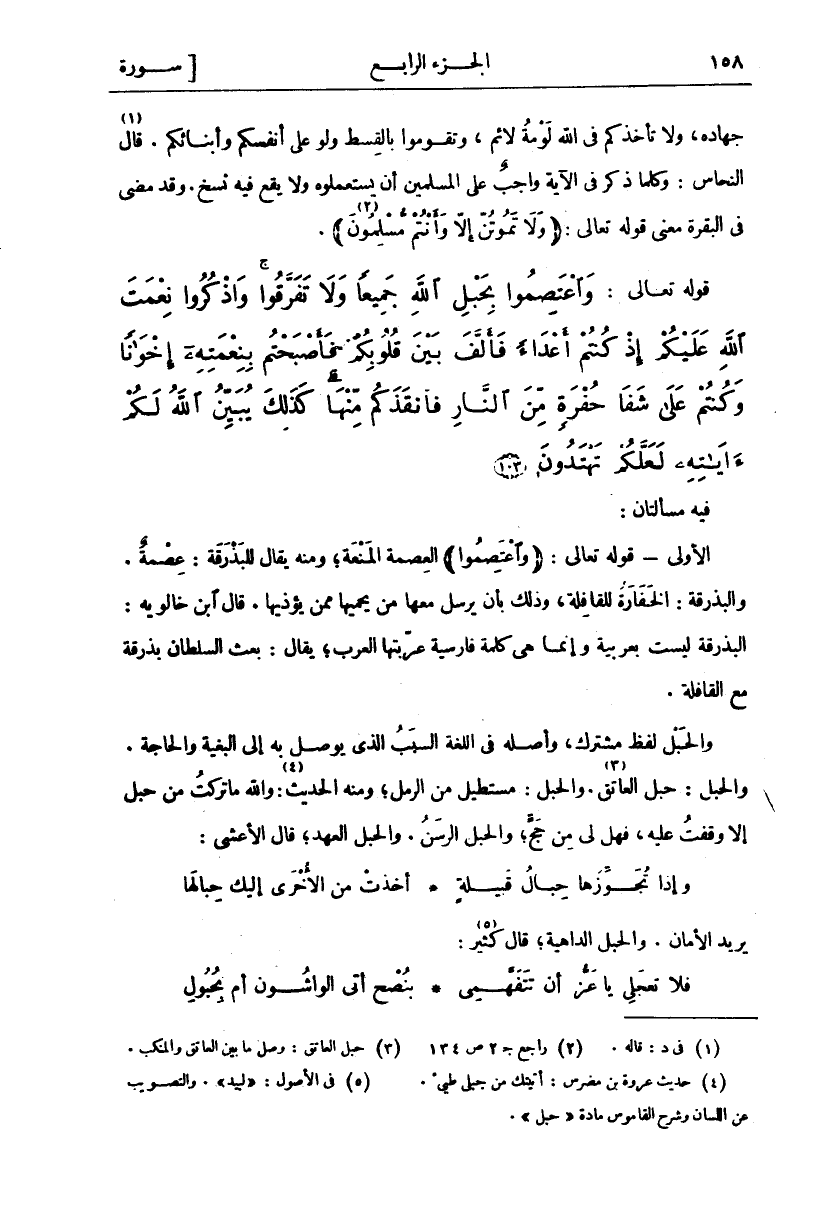 ١٥٨ الجـزء الرابع [ سـورة
جهاده، ولا تأخذكم فى الله لَوْمةُ لائم ، وتقـوموا بالقِسط ولو على أنفسكم وأبنـائكم . قال (١)
النحاس : وكلما ذكر فى الآية واجبٌ على المسلمين أن يستعملوه ولا يقع فيه نسخ . وقد مضى
فى البقرة معنى قوله تعالى : ﴿ وَلَا تَمُوتُنَّ إِلَّا وَأَنْتُمْ مُسْلِمُونَ ﴾ (٢) .
قوله تعـالى : وَٱعْتَصِمُوا بِحَبْلِ ٱللَّهِ جَمِيعًا وَلَا تَفَرَّقُوا ۚ وَٱذْكُرُوا نِعْمَتَ
ٱللَّهِ عَلَيْكُمْ إِذْ كُنتُمْ أَعْدَآءً فَأَلَّفَ بَيْنَ قُلُوبِكُمْ فَأَصْبَحْتُم بِنِعْمَتِهِۦٓ إِخْوَٰنًا
وَكُنتُمْ عَلَىٰ شَفَا حُفْرَةٍ مِّنَ ٱلنَّـارِ فَأَنقَذَكُم مِّنْهَا ۗ كَذَٰلِكَ يُبَيِّنُ ٱللَّهُ لَكُمْ
ءَايَـٰتِهِۦ لَعَلَّكُمْ تَهْتَدُونَ ١٠٣
فيه مسألتان :
الأولى — قوله تعالى : ﴿ وٱعْتَصِمُوا ﴾ العصمة المَنَعة؛ ومنه يقال للبَذْرَقة : عِصْمةٌ .
والبذرقة : الخَفَارَةُ للقافلة، وذلك بأن يرسل معها من يحميها ممن يؤذيها . قال ٱبن خالويه :
البذرقة ليست بعربية وإنمـا هى كلمة فارسية عرّبتها العرب؛ يقال : بعث السلطان بذرقة
مع القافلة .
والحَبْل لفظ مشترك، وأصله فى اللغة السبَبُ الذى يوصـل به إلى البغية والحاجة .
والحبل : حبل العاتق (٣) . والحبل : مستطيل من الرمل؛ ومنه الحديث (٤) : والله ماتركتُ من حبل
إلا وقفتُ عليه، فهل لى مِن حَجٍّ؛ والحبل الرسَنُ . والحبل العهد؛ قال الأعشى :
وإذا تُجَـوِّزها حِبالُ قَبيـلةٍ * أخذتْ من الأُخْرَى إليك حِبالهَا
يريد الأمان . والحبل الداهية؛ قال كُثَيِّر (٥) :
فلا تعجَلِى يا عَزُّ أن تتَفَهَّـمِى * بنُصْح أتى الواشُـون أم بحُبُولِ
(١) فى د : قاله . (٢) راجع جـ ٢ ص ١٣٤ (٣) حبل العاتق : وصل ما بين العاتق والمنكب .
(٤) حديث عروة بن مضرس : أتيتك من جبلى طيء . (٥) فى الأصول : «لبيد» . والتصـويب
عن اللسان وشرح القاموس مادة « حبل » .